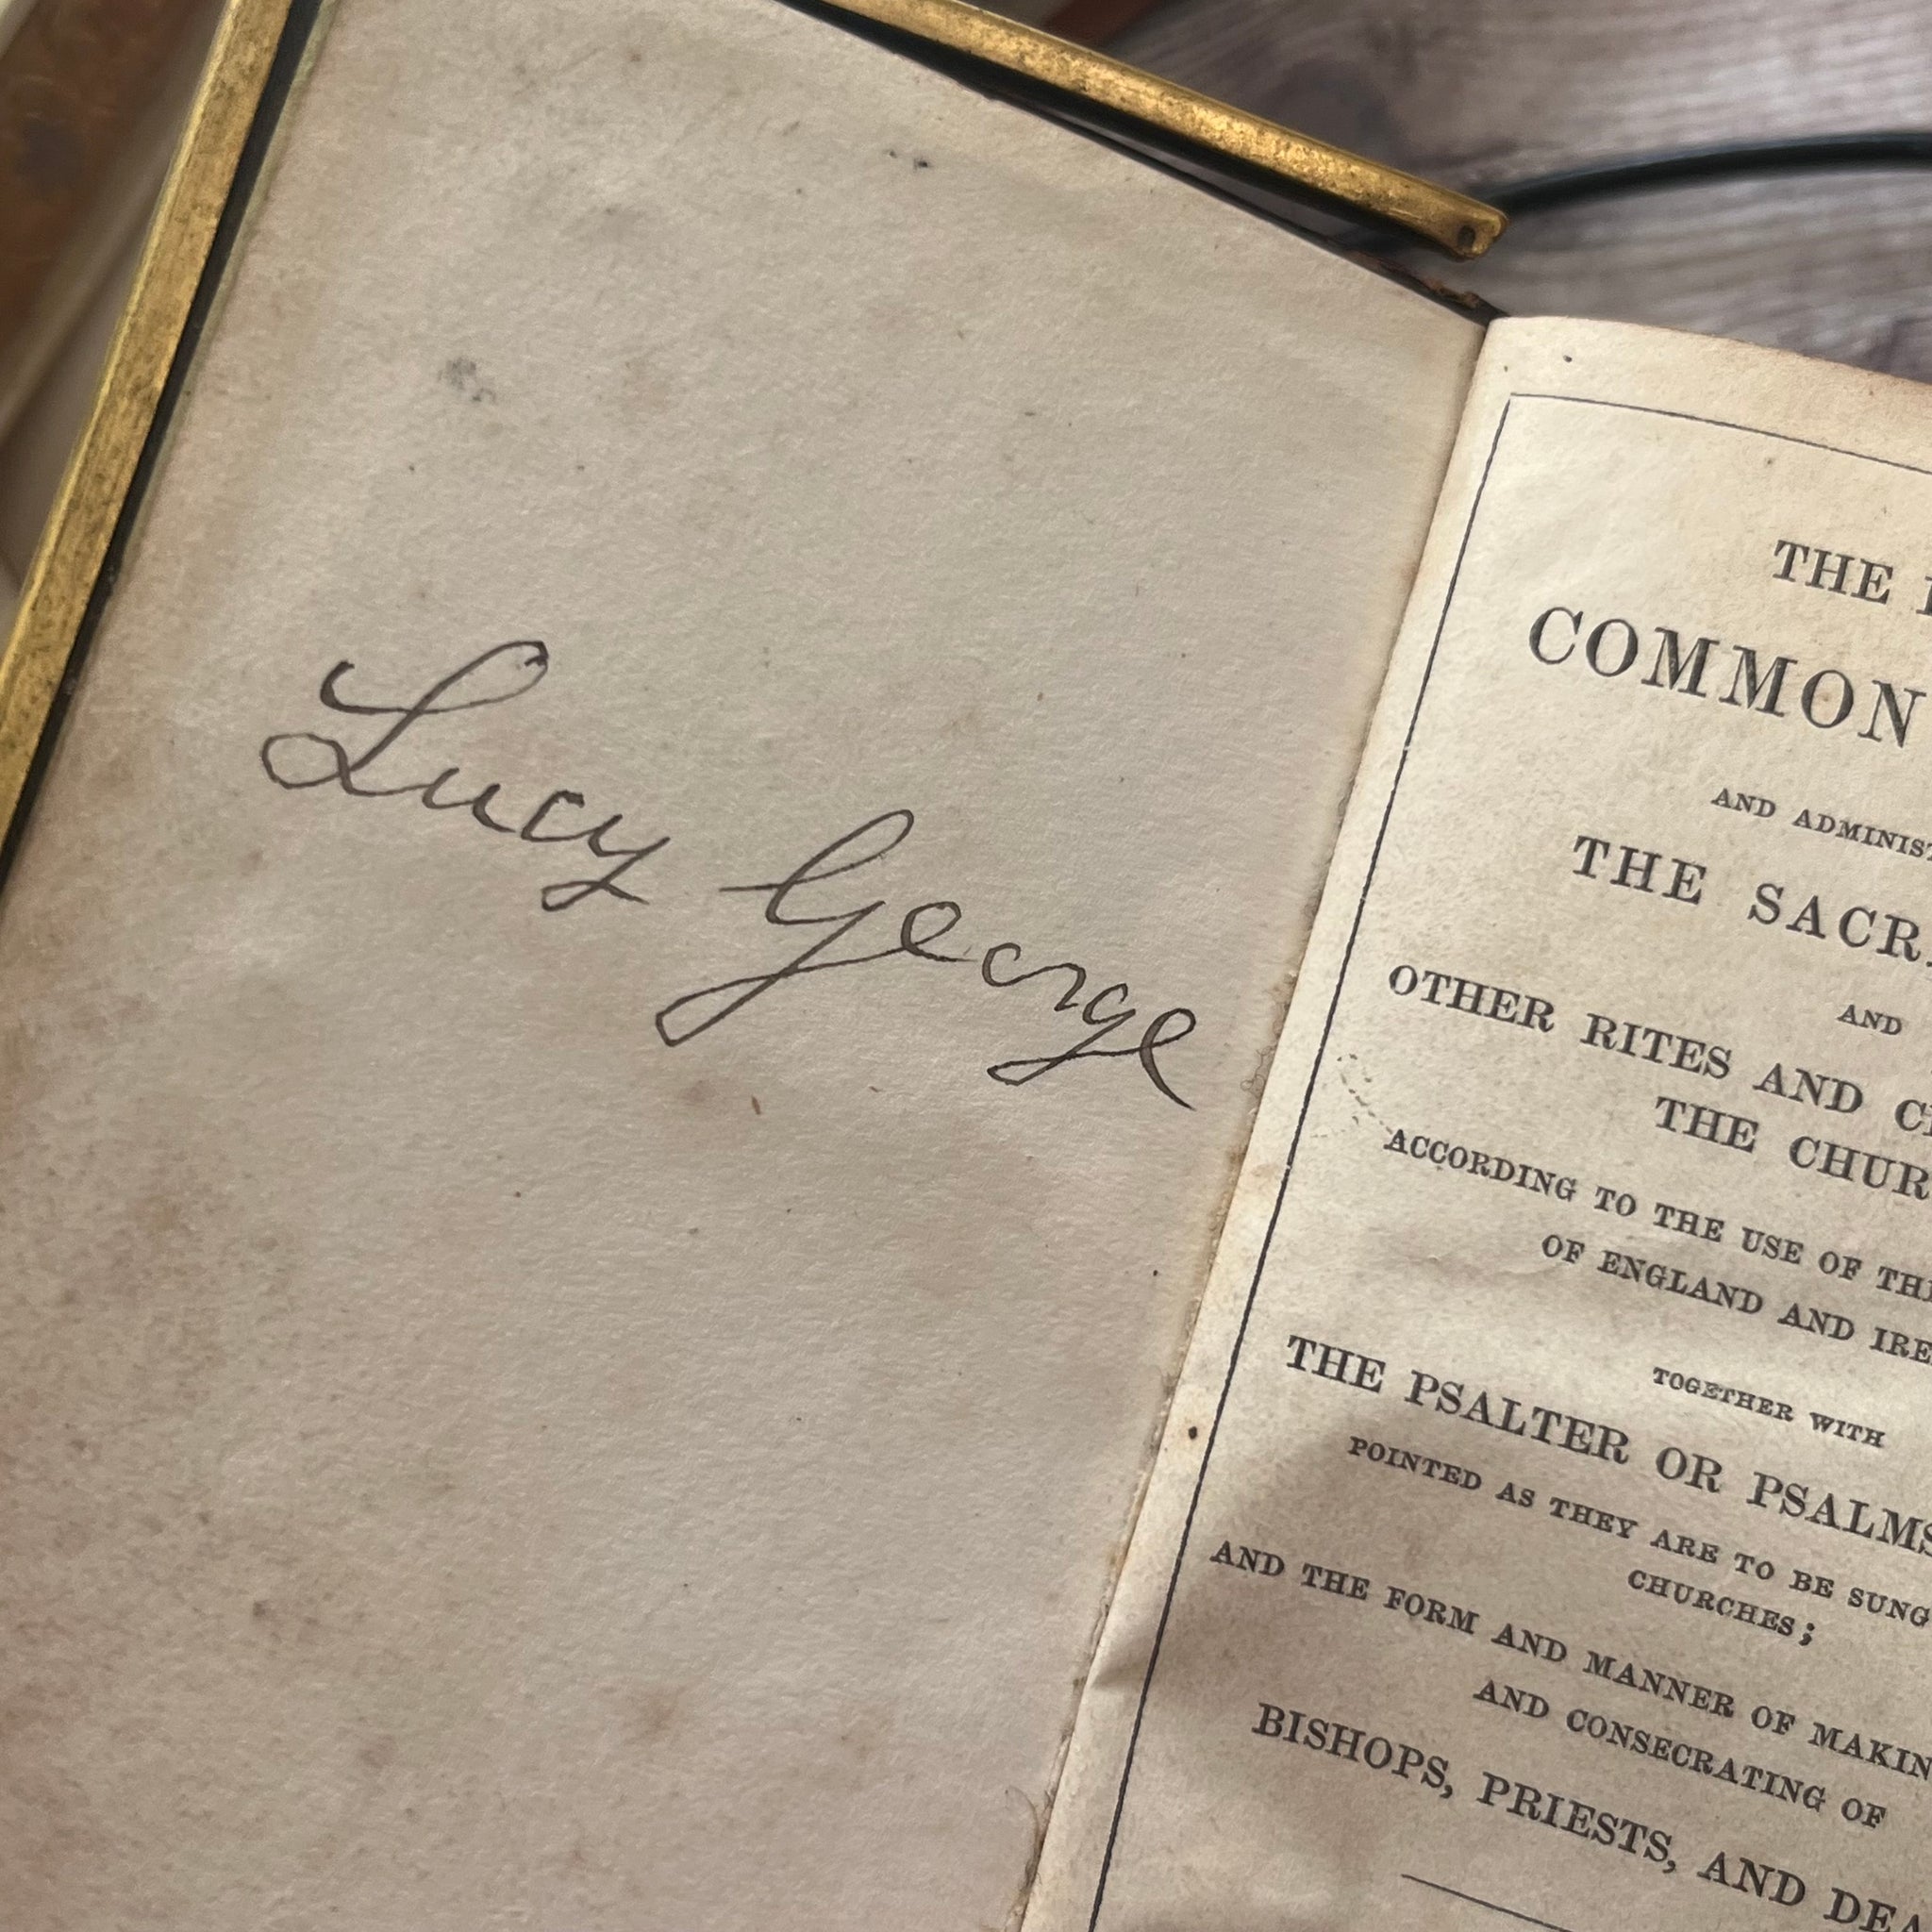 Lucy George
THE
COMMON
AND ADMINIS
THE SACR
OTHER RITES AND C
THE CHUR
ACCORDING TO THE USE OF TH
OF ENGLAND AND IRE
TOGETHER WITH
THE PSALTER OR PSALMS
POINTED AS THEY ARE TO BE SUNG
CHURCHES;
AND THE FORM AND MANNER OF MAKIN
AND CONSECRATING OF
BISHOPS, PRIESTS, AND DEA